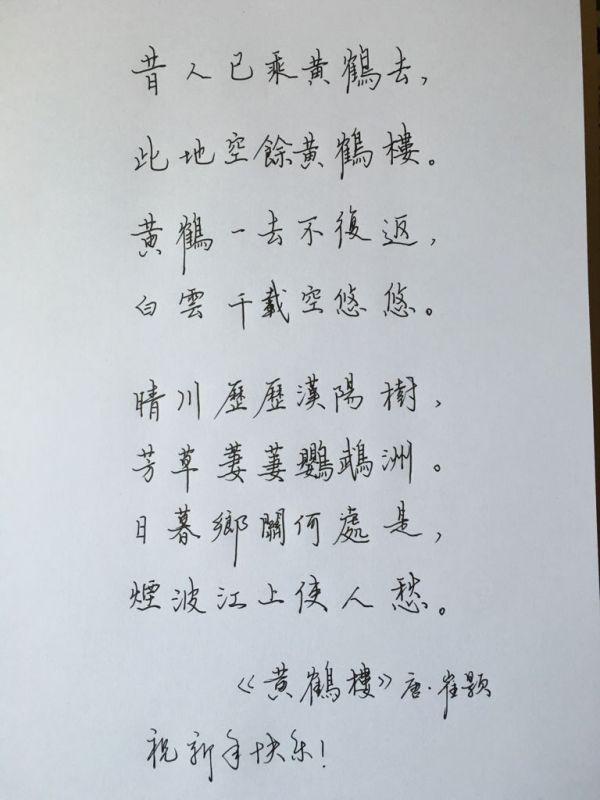 昔人已乘黄鶴去，
此地空餘黄鶴樓。
黄鶴一去不復返，
白雲千載空悠悠。
晴川歷歷漢陽樹，
芳草萋萋鸚鵡洲。
日暮鄉關何處是，
煙波江上使人愁。
《黄鶴樓》唐·崔顥
祝新年快乐！